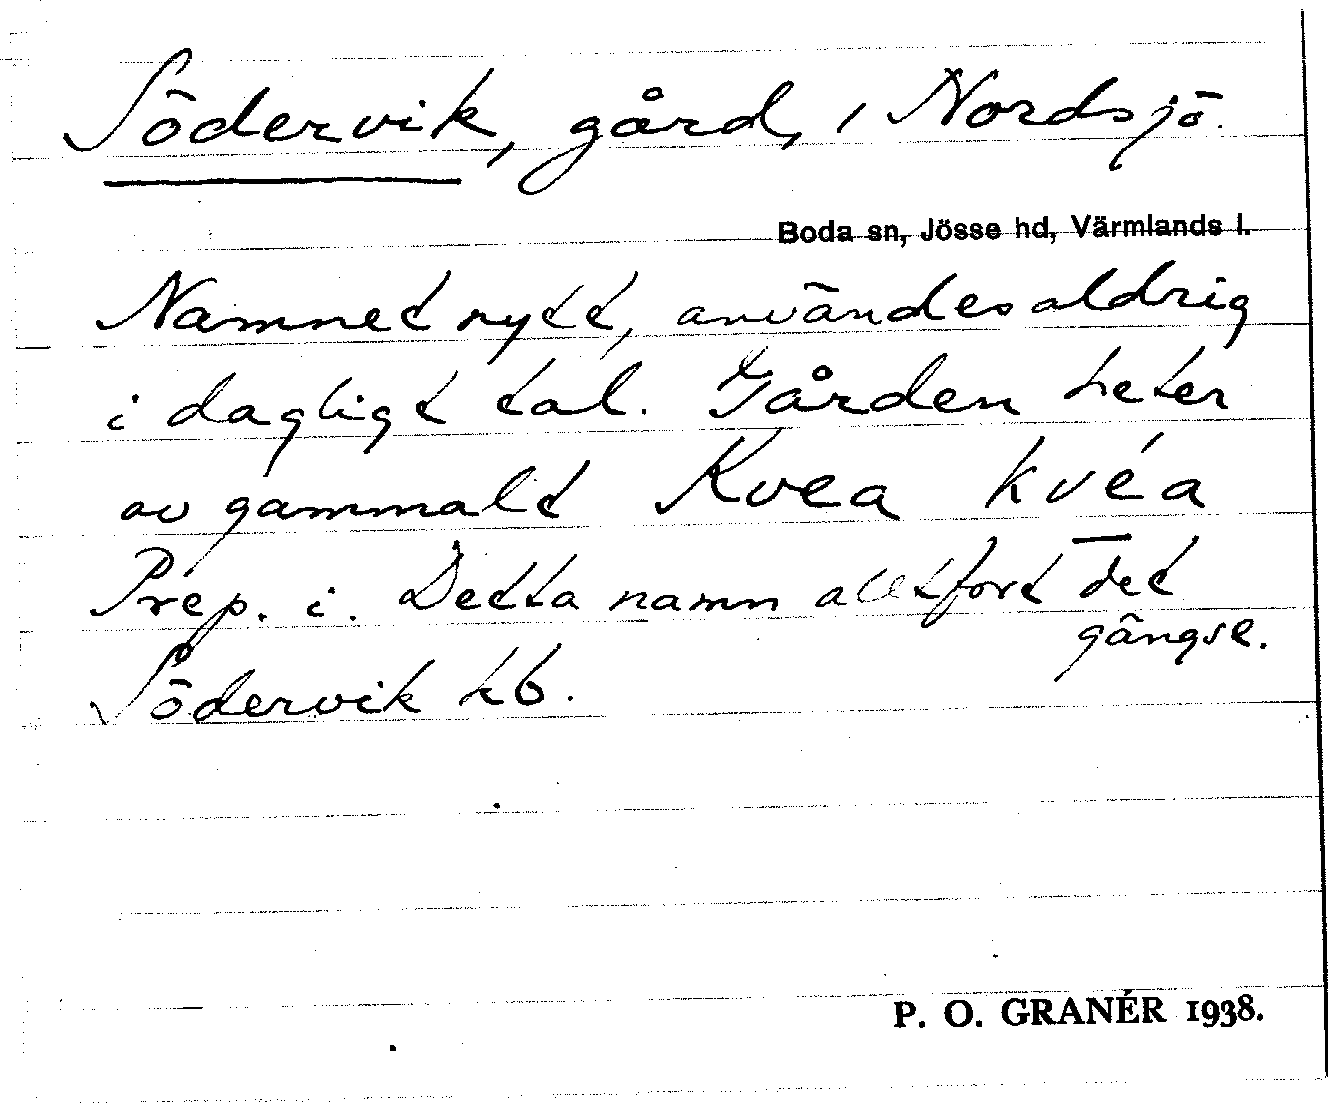 Södervik, gård, i Nordsjö.
Boda sn, Jösse hd, Värmlands l.
Namnet nytt, användes aldrig
i dagligt tal. Gården heter
av gammalt Kvea kvéa
Prep. i. Detta namn alltfort det
gängse.
Södervik kb.
P. O. GRANÉR 1938.